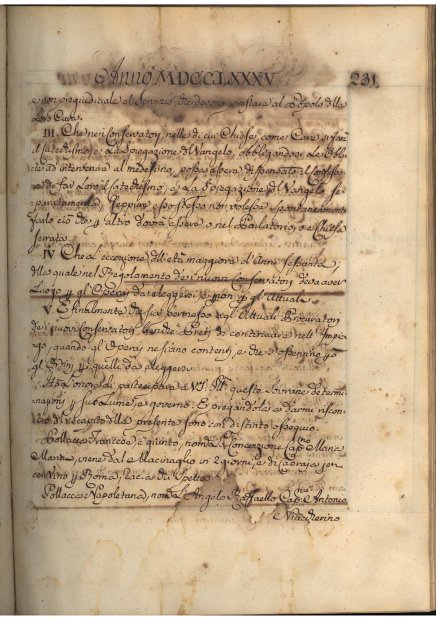 Anno MDCCLXXXV 231
e non pregiudiciale al Servizio che devono prestare al Popolo delle
loro Cure.
III. Che nei Conservatorj, nelle di cui Chiese, come Cure si fa
il Catechismo, e la Spiegazione del Vangelo, obbligandosi le Oblate
ad intervenire al medesimo, possa essere dispensato il Confessore
de far loro il Catechismo, e la Spiegazione del Vangelo se-
paratamente, seppure esso stesso non volesse spontaneamente
farlo ciò che per altro dovrà essere o nel Parlatorio, o a Chiesa
serrata.
IV Che l'eccezione dell'età maggiore d'Anni sessanta,
della quale nel Regolamento dei nuovi Conservatorj deva aver
Luogo per gl'Operaj da eleggersi e non per gl'Attuali.
V. E finalmente che sia permesso agl'Attuali Procuratori
dei nuovi Conservatorj benchè Preti di continuare nell'Impie-
go, quando gl'Operaj ne siano contenti, e che s'ostenghino
gl'Ordini per quelli da eleggersi.
Ho l'onore di partecipare a VS. Ill. queste Sovrane determi-
nazioni per suo Lume, e governo: E pregandola a darmi riscon-
tro di recapito della presente sono con distinto ossequio.
Pollacca Francese è giunto, nomta. Concezione Capno. Mane
Marin, viene dal e in 2 giorni, e di
con Vino per Roma, hà di Spetta.
Pollacca Napoletana, nomta. S. Angelo Raffaello Capno. Antonio